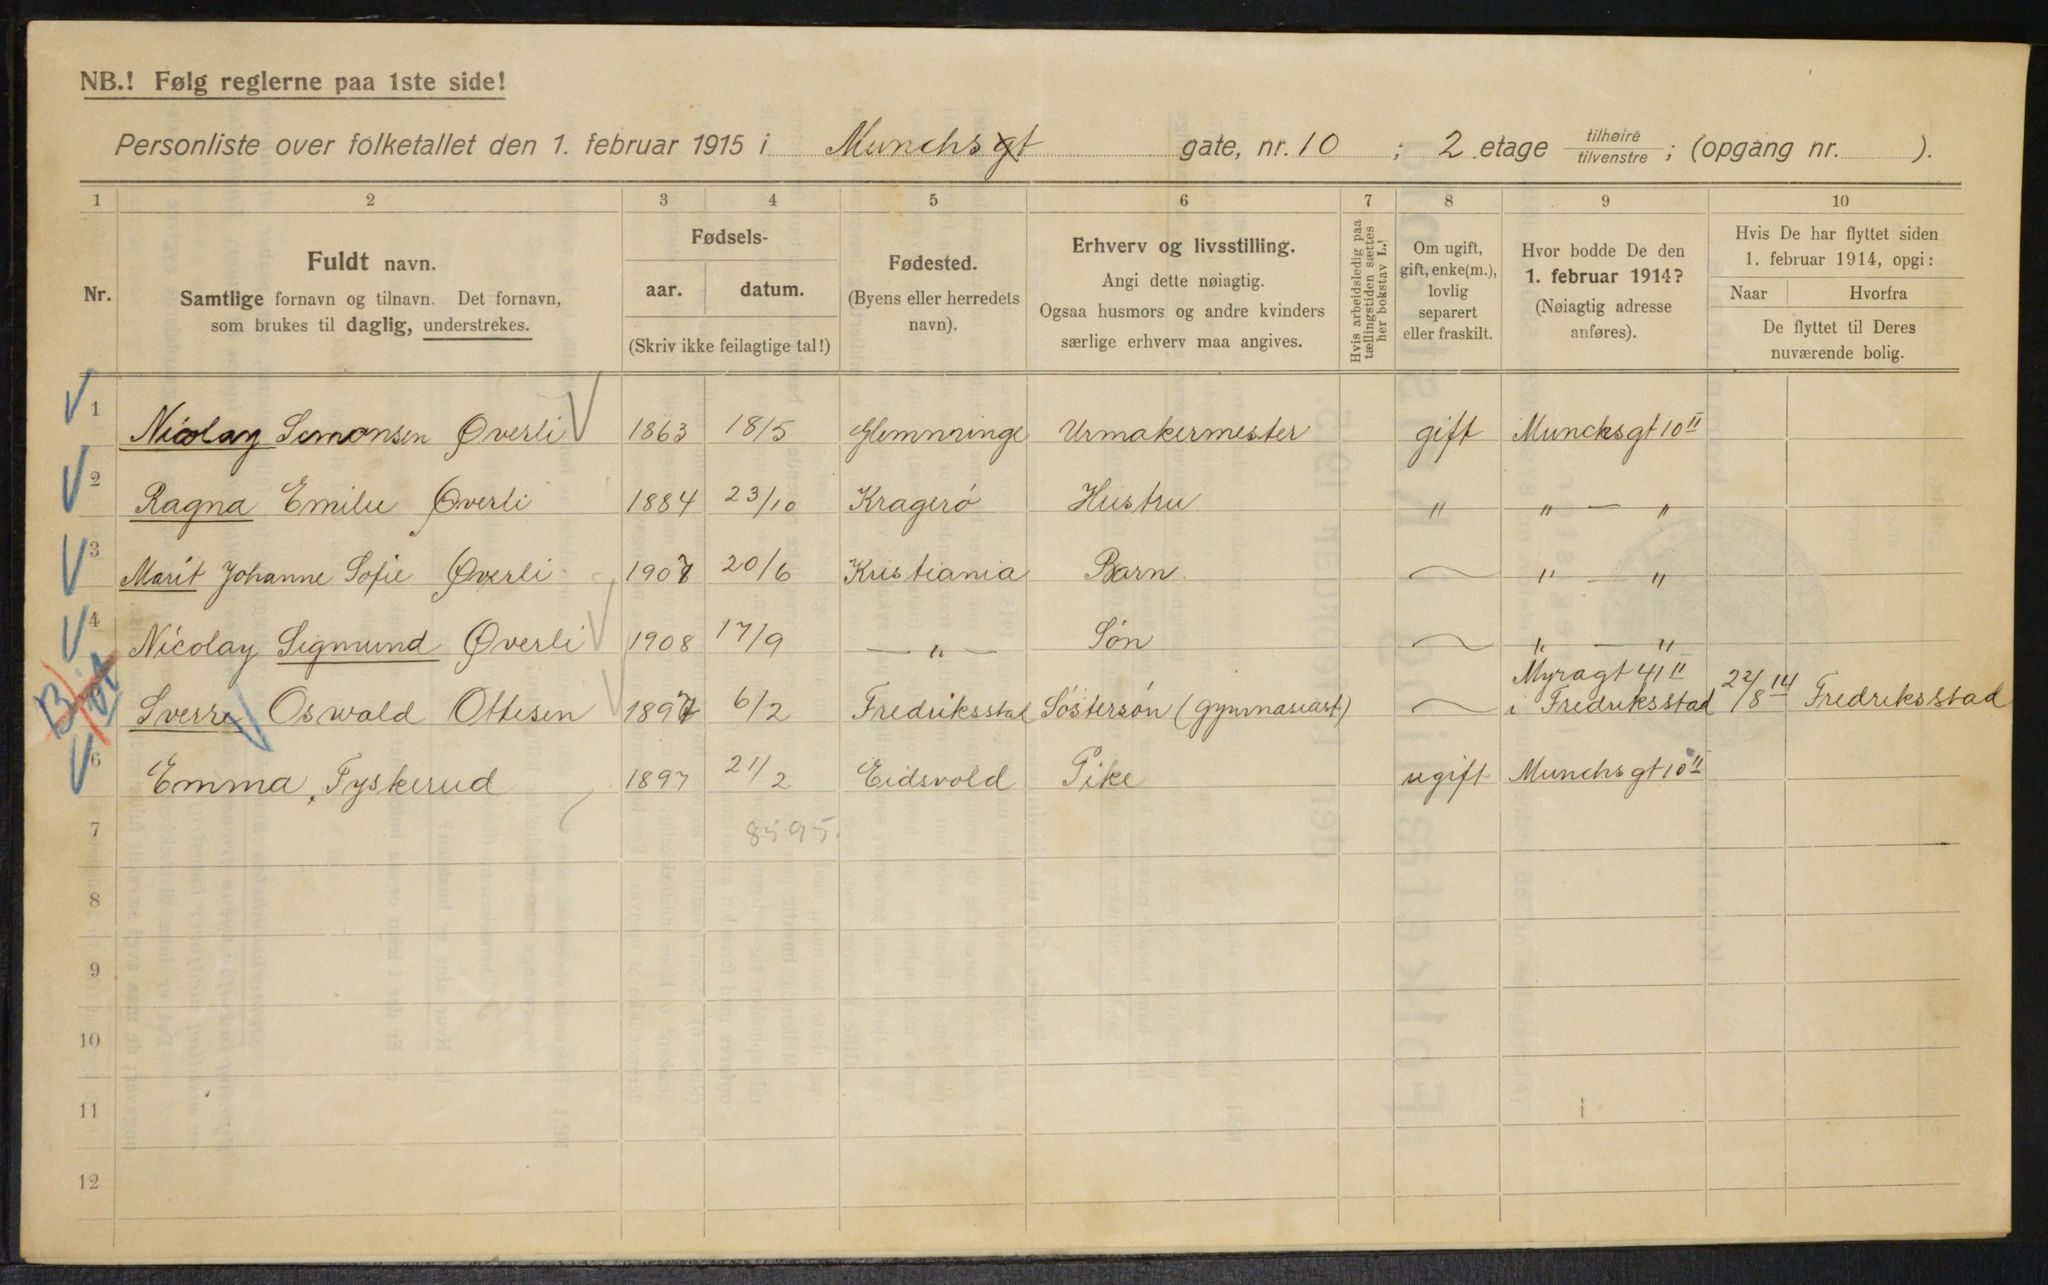 NB.! Følg reglerne paa 1ste side!
Personliste over folketallet den 1. februar 1915 i Munchsgt gate, nr. 10 ; 2 etage tilhøire / tilvenstre ; (opgang nr. ).
1 2 3 4 5 6 7 8 9 10
Nr.
Fuldt navn.
Samtlige fornavn og tilnavn. Det fornavn,
som brukes til daglig, understrekes.
Fødsels-
aar. datum.
(Skriv ikke feilagtige tal!)
Fødested.
(Byens eller herredets
navn).
Erhverv og livsstilling.
Angi dette nøiagtig.
Ogsaa husmors og andre kvinders
særlige erhverv maa angives.
Hvis arbeidsledig paa
tællingstiden sættes
her bokstav L.!
Om ugift,
gift, enke(m.),
lovlig
separert
eller fraskilt.
Hvor bodde De den
1. februar 1914?
(Nøiagtig adresse
anføres).
Hvis De har flyttet siden
1. februar 1914, opgi:
Naar Hvorfra
De flyttet til Deres
nuværende bolig.
1 Nicolay Simonsen Øverli 1863 18/5 Glemminge Urmakermester gift Muncksgt 10 II
2 Ragna Emilie Øverli 1884 23/10 Kragerö Hustru " " — "
3 Marit Johanne Sofie Øverli 1907 20/6 Kristiania Barn. — " — "
4 Nicolay Sigmund Øverli 1908 17/9 — " — Sön — " — "
Myragt 41 II
Sverre Oswald Ottesen 1897 6/2 Fredriksstad Söstersön (gymnasiast) — i Fredriksstad 22/8 14 Fredriksstad
6 Emma Tyskerud 1897 21/2 Eidsvold Pike ugift Munchsgt 10 II
7 8595.
8
9
10
11
12